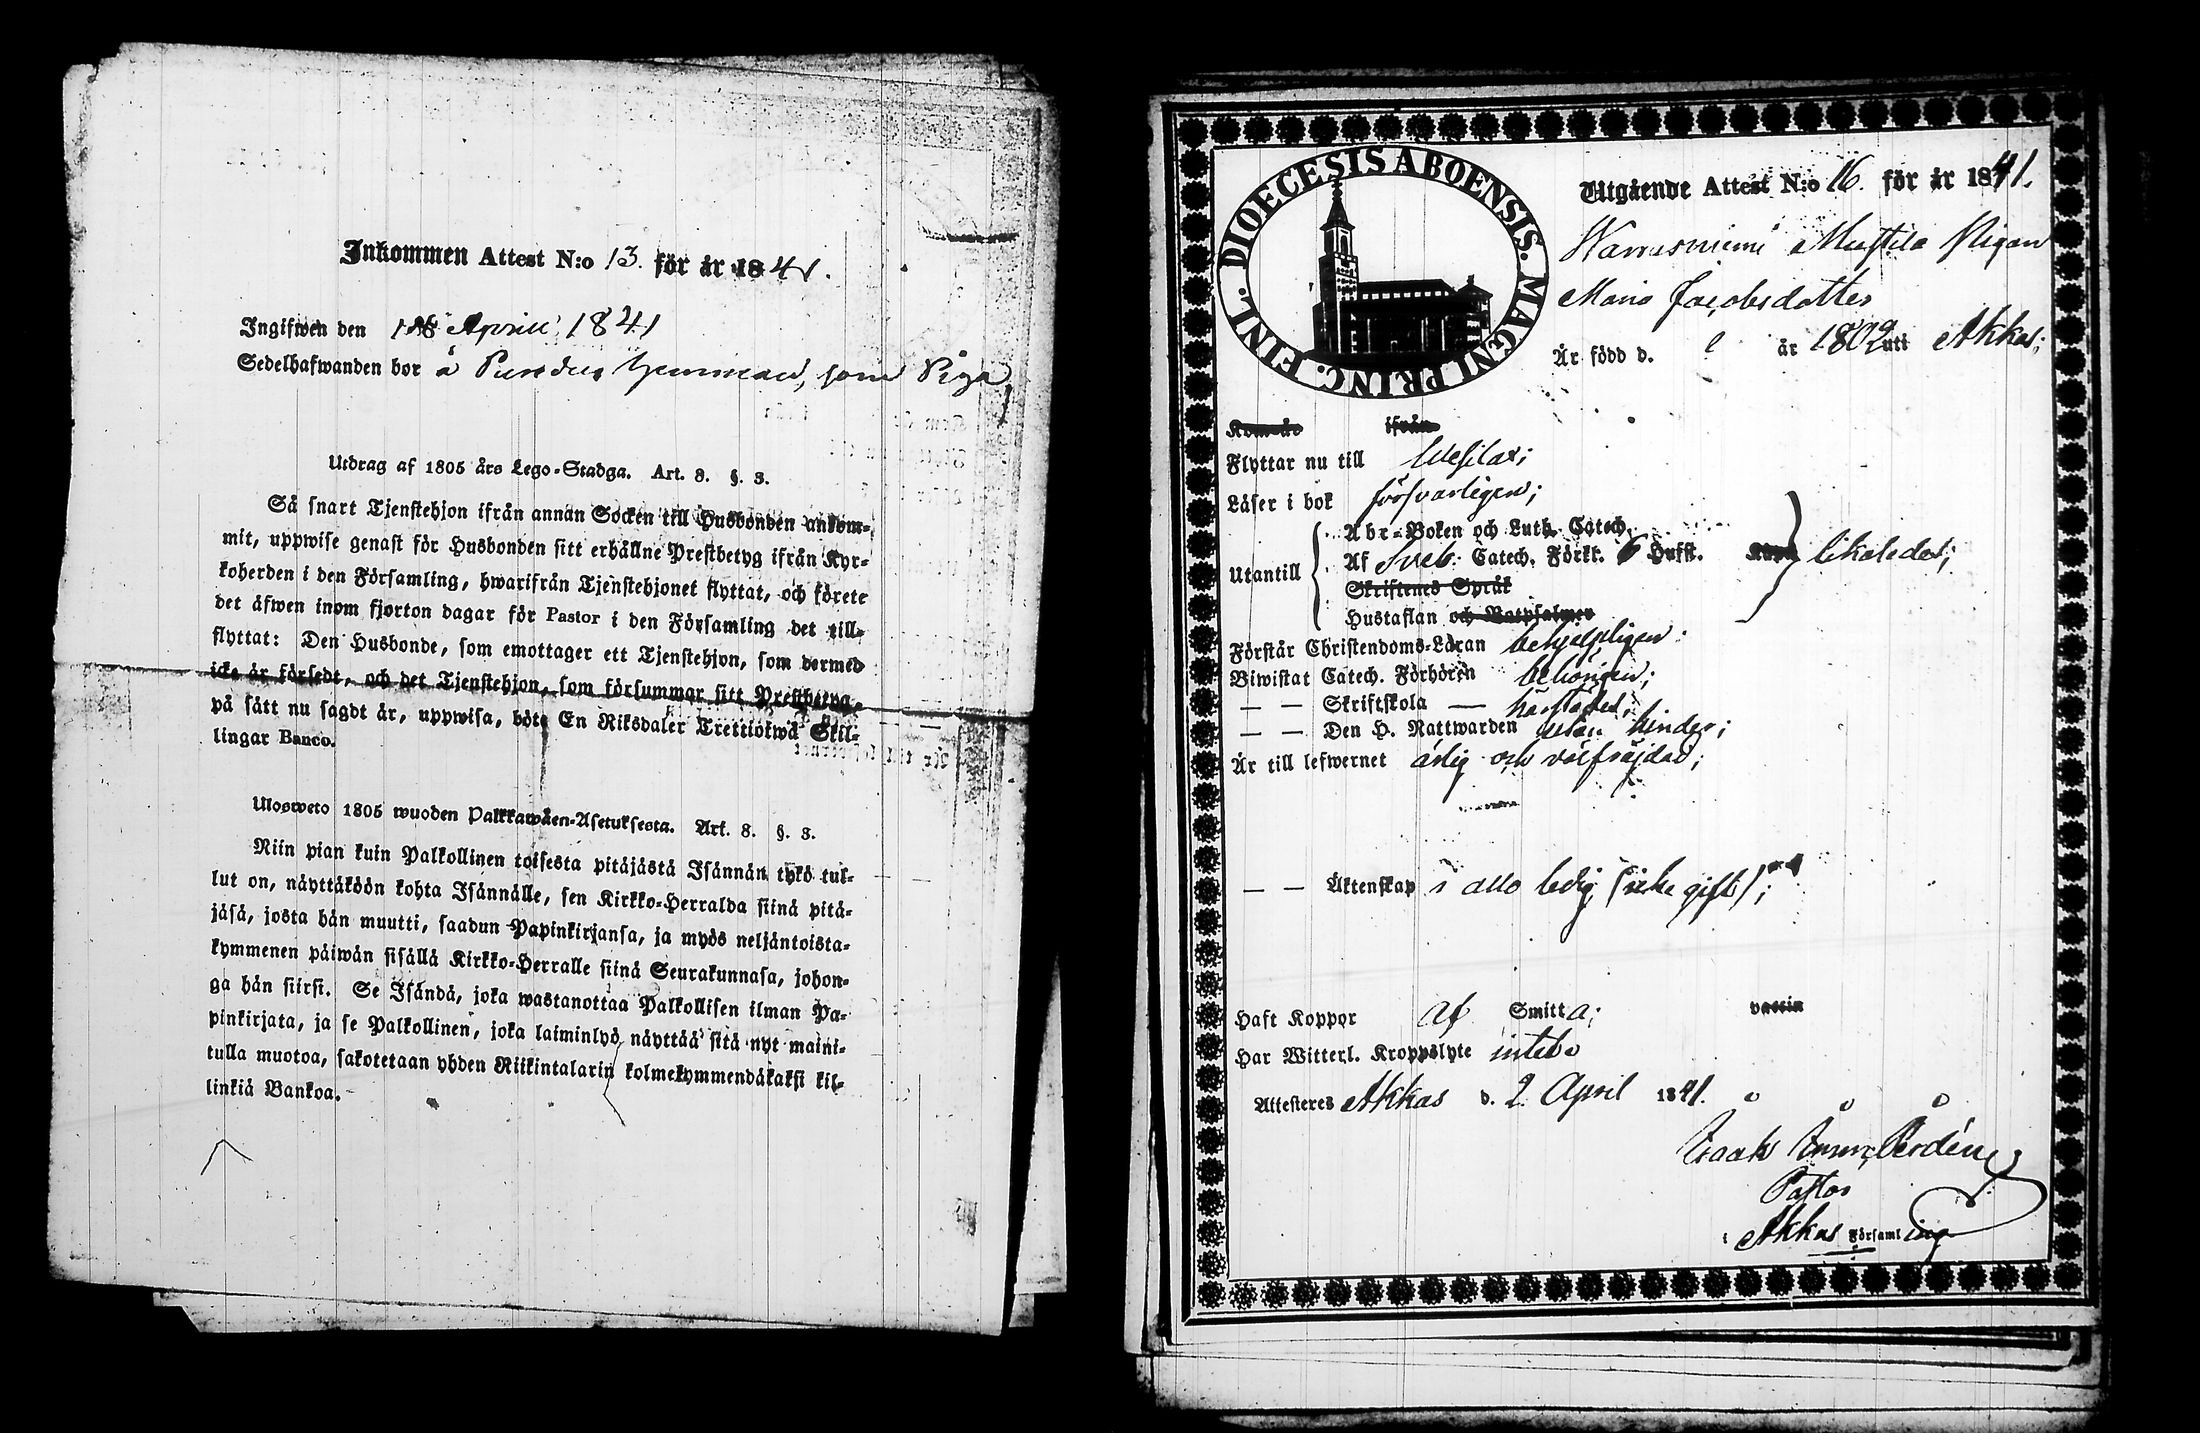 Inkommen Attest N:o 13. för år 1841.
Ingifwen den Aprill 1841
Sedelhafwanden bor å hemman, som Piga,
Utdrag af 1805 års Lego-Stadga. Art. 8. §. 3.
Så snart Tjenstehjon ifrån annan Socken till Husbonden ankom-
mit, uppwise genast för Husbonden sitt erhållne Prestbetyg ifrån Kyr-
koherden i den Församling, hwarifrån Tjenstehjonet flyttat, och förete
det äfwen inom fjorton dagar för Pastor i den Församling det till-
flyttat: Den Husbonde, som emottager ett Tjenstehjon, som dermed
icke är försedt, och det Tjenstehjon, som försummar sitt Prestbetyg,
på sätt nu sagdt är, uppwisa, böte En Riksdaler Trettiotwå Skil-
lingar Banco.
Ulosweto 1805 wuoden Palkkawäen-Asetuksesta. Art. 8. §. 3.
Niin pian kuin Palkollinen toisesta pitäjästä Isännän tykö tul-
lut on, näyttäköön kohta Isännälle, sen Kirkko-Herralda siinä pitä-
jäsä, josta hän muutti, saadun Papinkirjansa, ja myös neljäntoista-
kymmenen päiwän sisällä Kirkko-Herralle siinä Seurakunnasa, johon-
ga hän siirsi. Se Isändä, joka wastanottaa Palkollisen ilman Pa-
pinkirjata, ja se Palkollinen, joka laiminlyö näyttää sitä nyt maini-
tulla muotoa, sakotetaan yhden Riikintalarin kolmekymmendäkaksi kil-
linkiä Bankoa.
DIOECESIS ABOENSIS. MAGNI PRINC. FINL.
Utgående Attest N:o 16. för år 1841.
Warrasniemi Mustila Pigan
Maria Jacobsdotter
Är född d. år 1809 uti Akkas;
Kom år ifrån
Flyttar nu till Wesilax;
Läser i bok försvarligen;
Utantill
Abc-Boken och Luth. Catech.
Af Sveb. Catech. Förkl. 6 Hufst. likaledes;
Skriftenes Språk
Hustaflan och Botpsalmer
Förstår Christendoms-Läran behjelpligen;
Biwistat Catech. Förhören behörigen;
— — Skriftskola — härstädes;
— — Den H. Nattwarden utan hinder;
Är till lefwernet ärlig och välfräjdad;
— — Äktenskap i allo ledig (icke gift);
Haft Koppor af Smitta; vaccin
Har Witterl. Kroppslyte intet.
Attesteres Akkas d. 2 April 1841.
Isaak
Pastor
i Akkas Församling